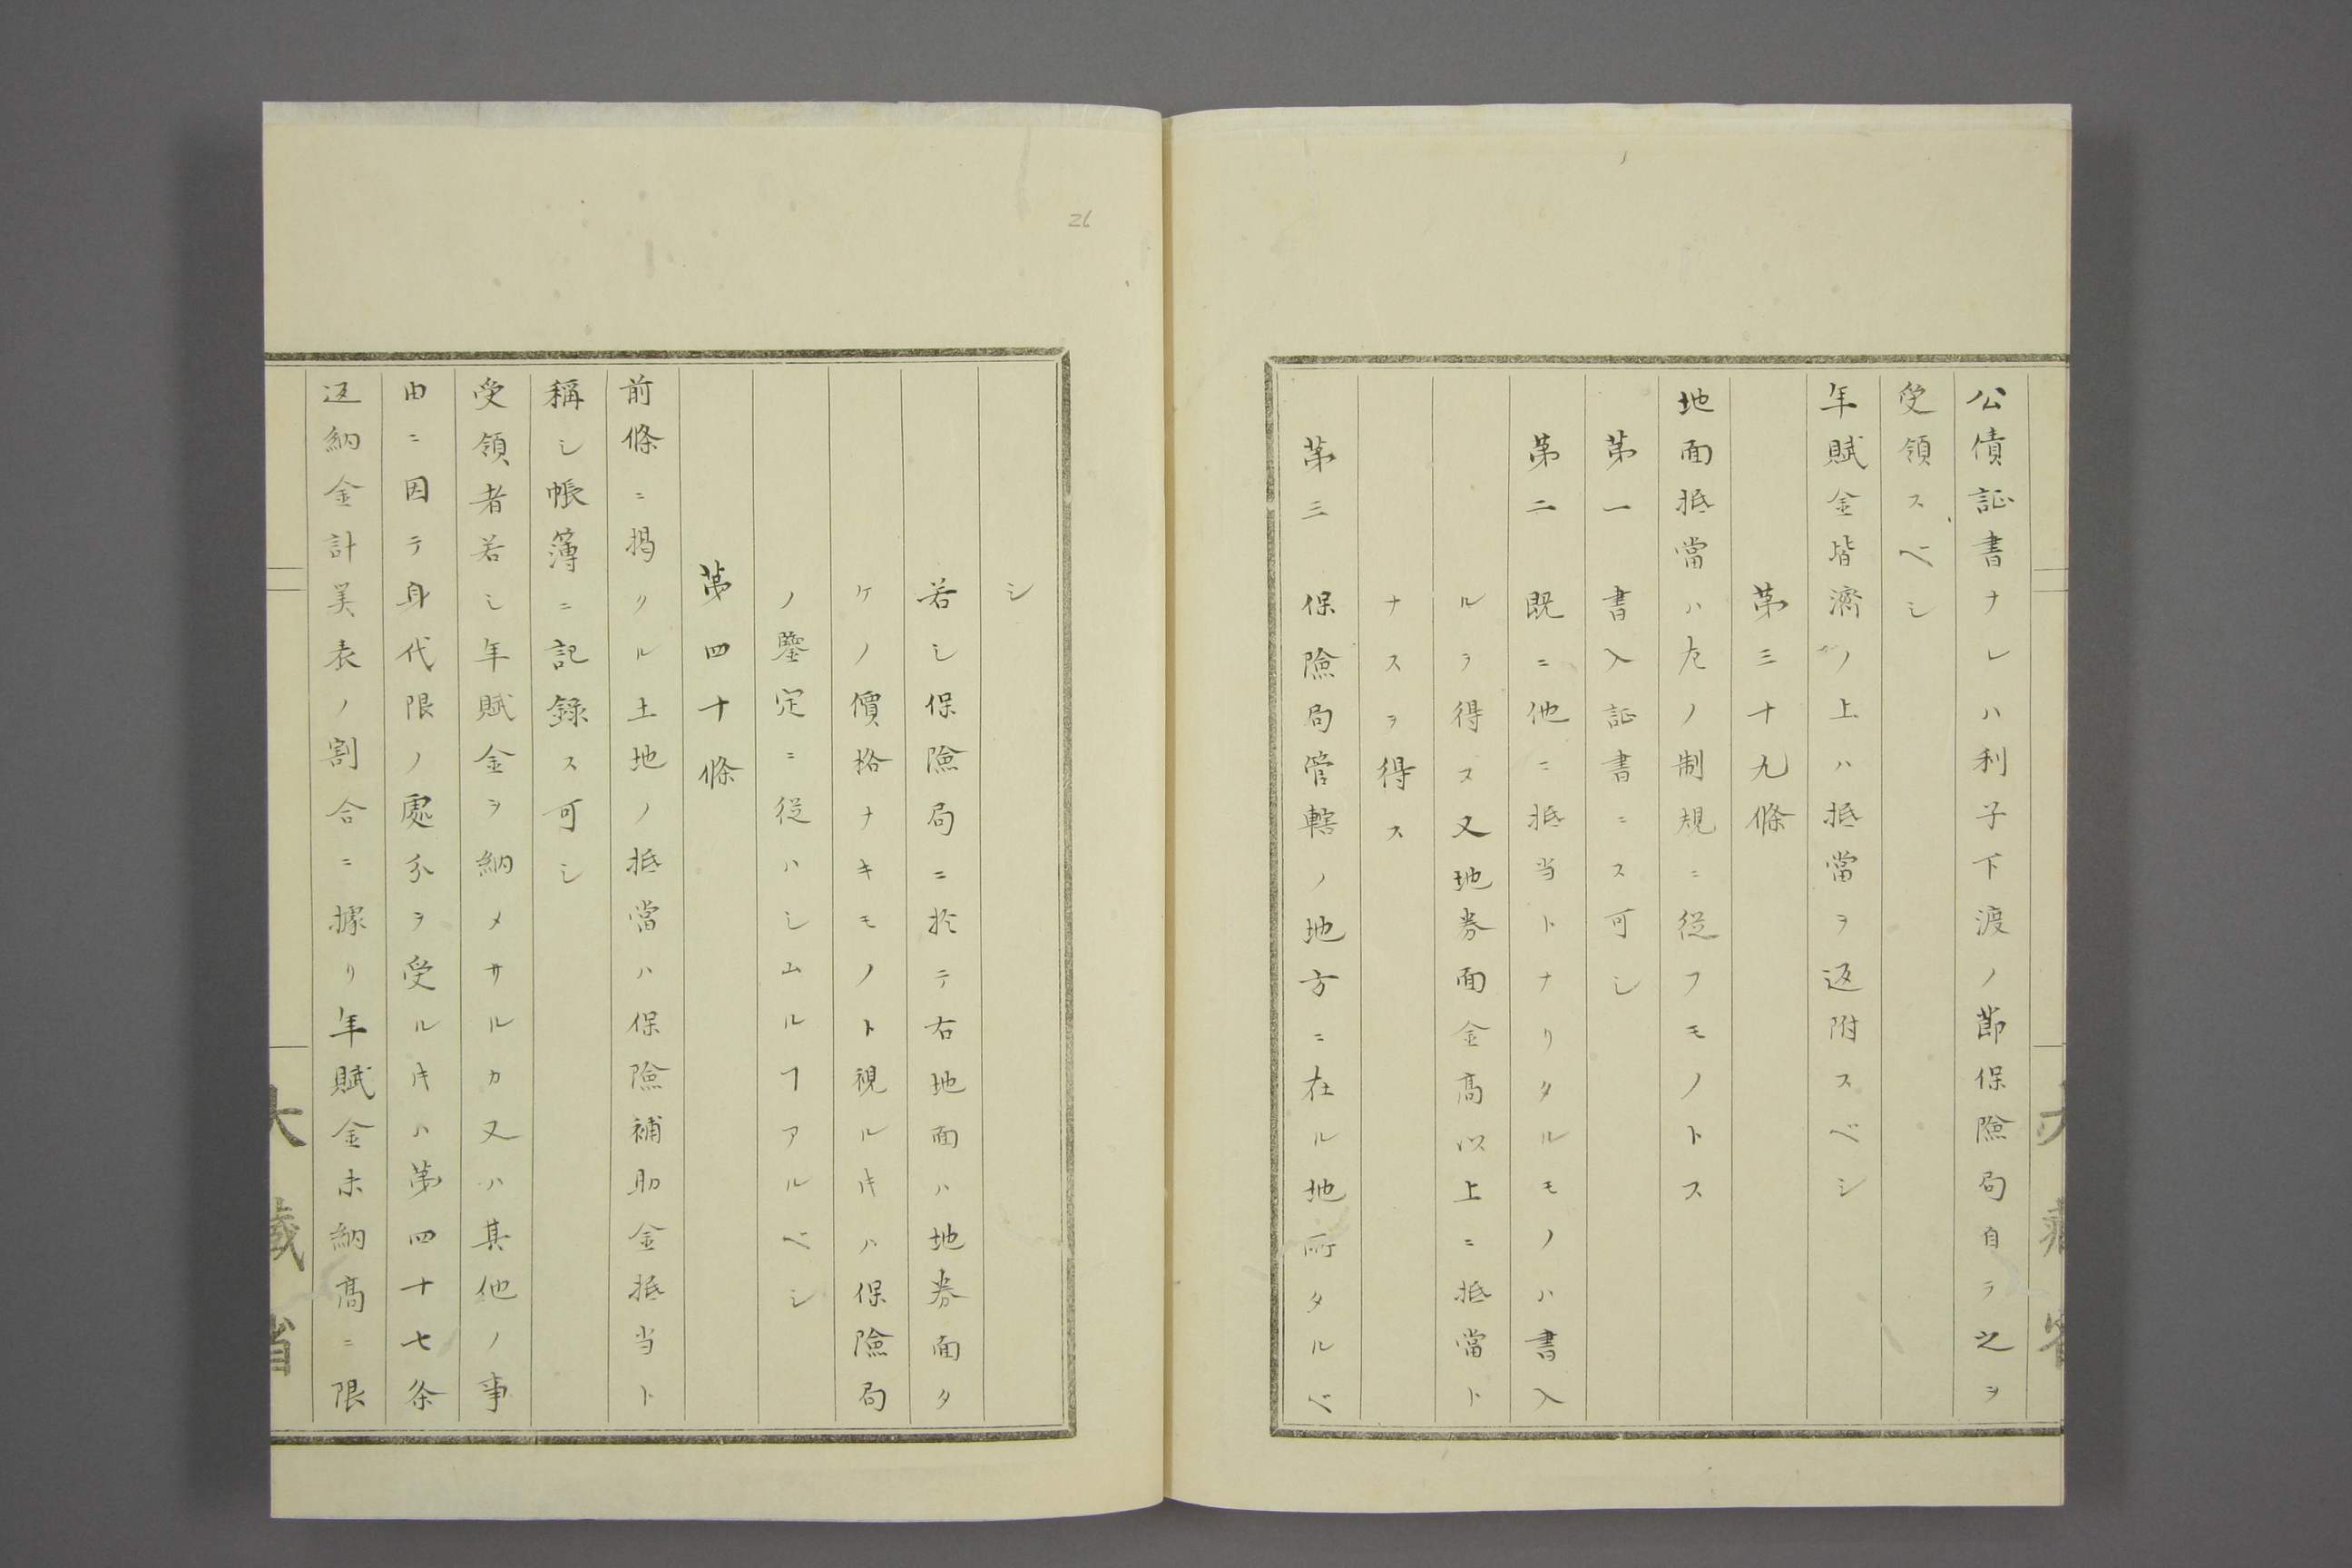 公債証書ナレハ利子下渡ノ節保險局自ラ之ヲ
受領スベシ
年賦金皆濟ノ上ハ抵當ヲ返附スベシ
第三十九條
地面抵當ハ左ノ制規ニ從フモノトス
第一 書入証書ニス可シ
第二 既ニ他ニ抵当トナリタルモノハ書入
ルヲ得ス又地券面金高以上ニ抵當ト
ナスヲ得ス
第三 保險局管轄ノ地方ニ在ル地所タルベ
シ
若シ保險局ニ於テ右地面ハ地券面タ
ケノ價格ナキモノト視ルㇰキハ保險局
ノ鑒定ニ從ハシムルヿアルベシ
第四十條
前條ニ掲クル土地ノ抵當ハ保險補助金抵当ト
稱シ帳簿ニ記録ス可シ
受領者若シ年賦金ヲ納メサルカ又ハ其他ノ事
由ニ因テ身代限ノ處分ヲ受ルキハ第四十七条
返納金計算表ノ割合ニ據リ年賦金未納高ニ限
大藏省
26